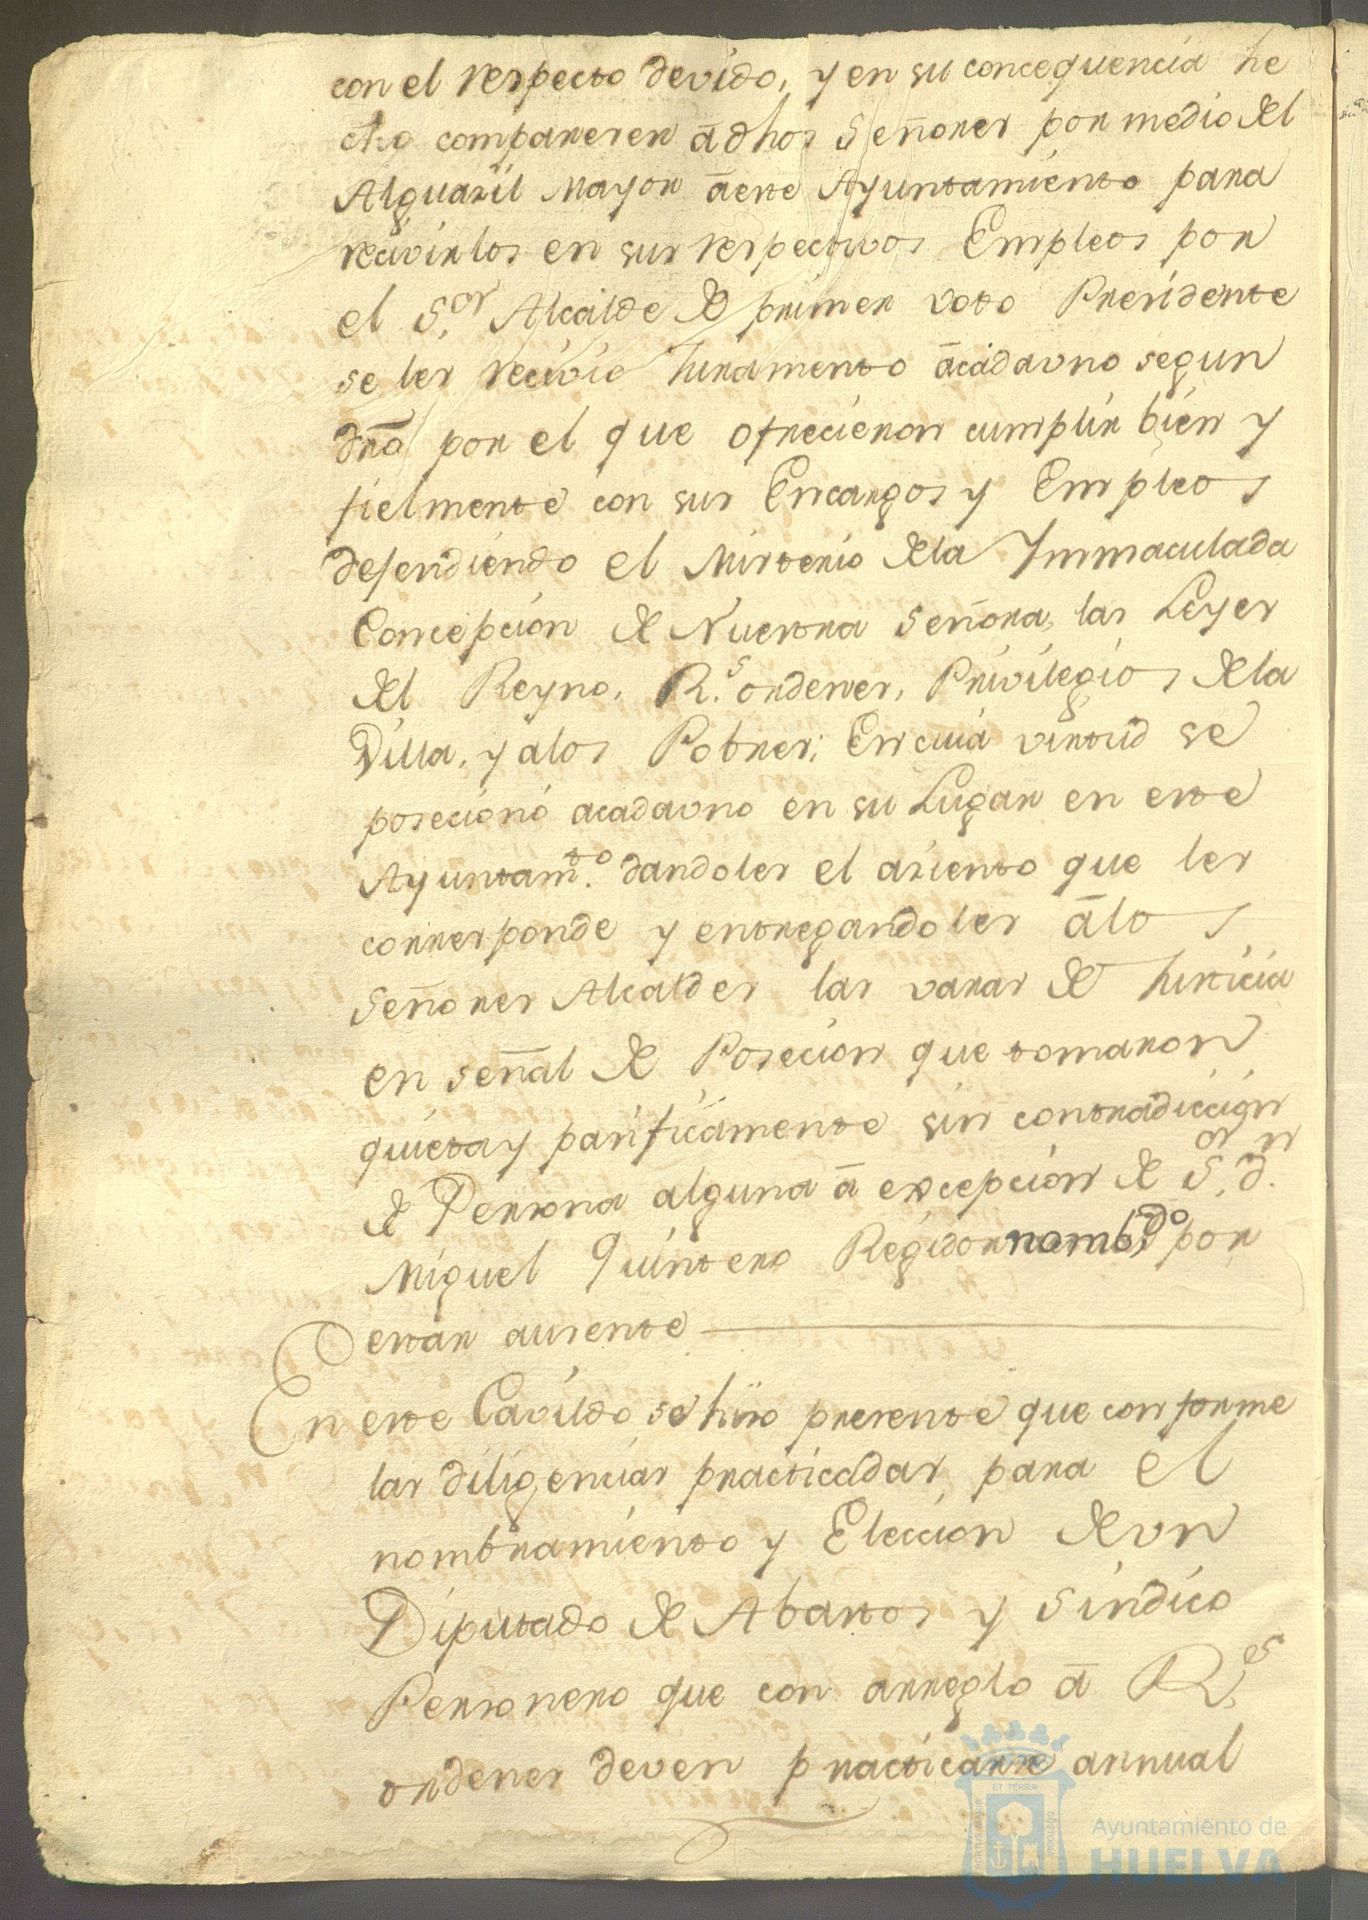 con el respecto devido, y en su concequencia he
cho compareren â dhos Señores por medio del
Alguaxil Mayor â este Ayuntamiento para
recivirlos en sus respectivos Empleos por
el S.or Alcalde de primer voto Presidente
se les recivio Juramento âcadauno segun
dro por el que ofrecieron cumplir bien y
fielmente con sus Encargos y Empleos
defendiendo el Misterio dela Ymmaculada
Concepcion de Nuestra Señora, las Leyes
del Reyno, R.s ordenes, Privilegios dela
Villa, y alos Pobres; En cuia virtud se
posecionó acadauno en su Lugar en este
Ayuntam.to dandoles el asiento que les
corresponde y entregandoles âlos
Señores Alcaldes las varas de Justicia
en señal de Posecion que tomaron
quieta y pasificamente sin contradiccion
de Persona alguna â excepcion de S.or d.n
Miguel Quintero Regidor nomb.do por
estar ausente
En este Cavildo se hizo presente que conforme
las diligencias practicadas para el
nombramiento y Eleccion de vn
Diputado de Abastos y Sindico
Personero que con arreglo â R.es
ordenes deven practicarse annual
ET TERRÆ
Ayuntamiento de
HUELVA